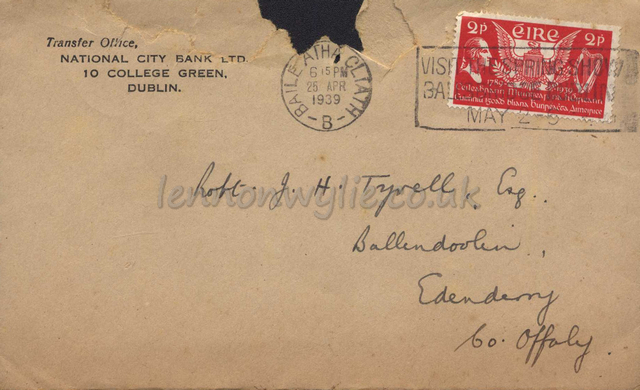 Transfer Office,
NATIONAL CITY BANK LTD.
10 COLLEGE GREEN,
DUBLIN.
BAILE ATHA CLIATH
6 15 PM
25 APR
1939
- B -
VISIT SPRING SHOW
BAL
MAY 2
2p éiRe 2p
1789 1939
Robt. J. H. Tyrell, Esq.
Ballindoolin,
Edenderry
Co. Offaly.
lennonwylie.co.uk